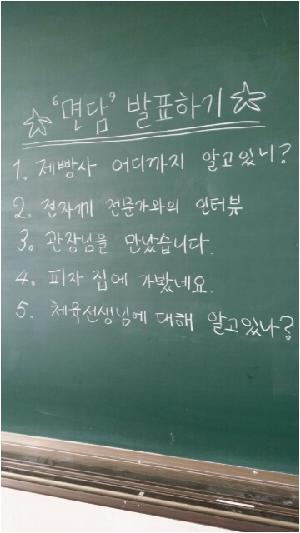 ☆ "면담" 발표하기 ☆
1. 제빵사 어디까지 알고있니?
2. 전자기기 전문가와의 인터뷰
3. 관장님을 만났습니다.
4. 피자 집에 가봤네요.
5. 체육선생님에 대해 알고있나?